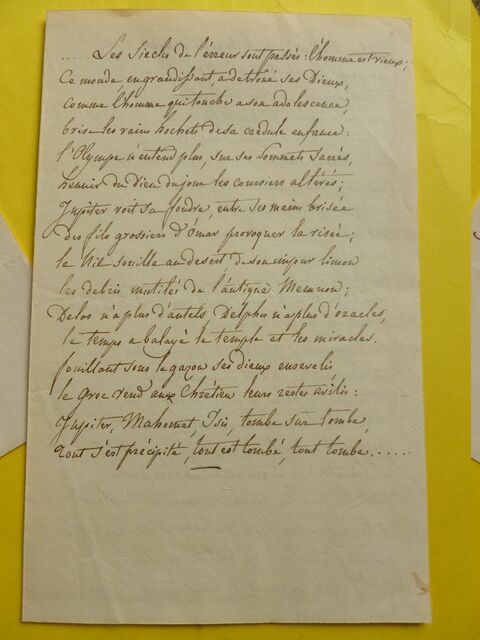 ..... Les siecles de l'érreur sont passés : l'homme est vieux ;
Ce monde en grandissant, a detrôné ses Dieux,
comme l'homme qui touche a son adolescence,
brise les vains hochets de sa credule enfance :
l'Olympe n'entend plus, sur ses sommets sacrés,
hennir du dieu du jour les coursiers altérés ;
Jupiter voit sa foudre, entre ses mains brisée
des fils grossiers d'Omar provoquer la risée ;
le Nil souille au desert de son impur limon
les debris mutilés de l'antique Memnon ;
Delos n'a plus d'autels, Delphes n'a plus d'oracles,
le temps a balayé le temple et les miracles.
fouillant sous le gazon ses dieux ensevelis
le Grec vend aux Chrétien leurs restes avilis :
Jupiter, Mahomet, Isis, tombe sur tombe,
tout s'est précipité, tout est tombé, tout tombe .....